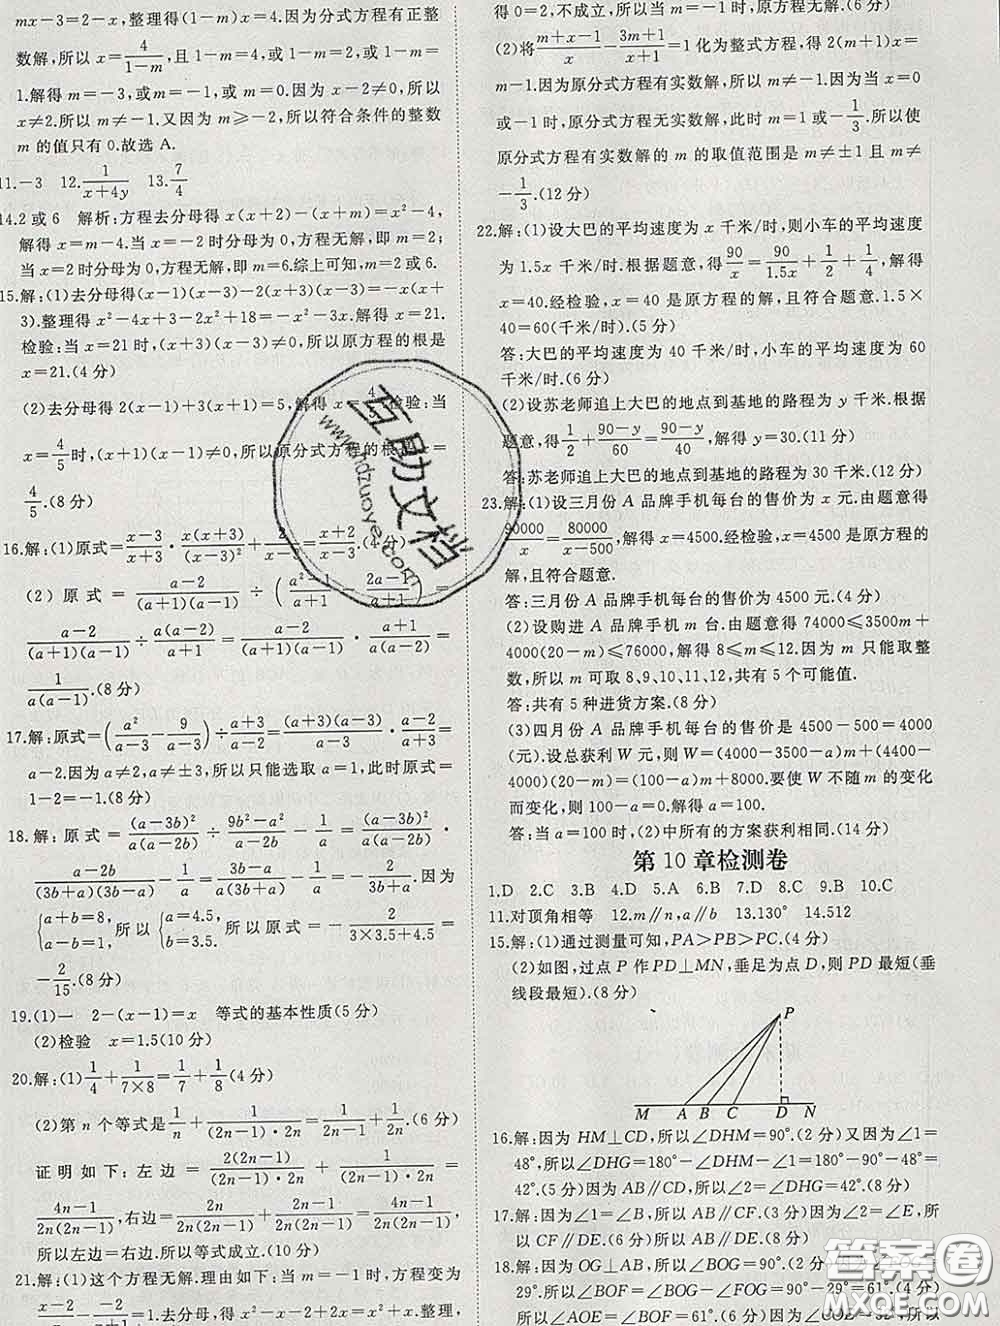 mx－3＝2－x,整理得(1－m)x＝4.因为分式方程有正整
数解,所以 x＝4/(1－m),且 1－m＝4,或 1－m＝2,或 1－m＝
1.解得 m＝－3,或 m＝－1,或 m＝0.因为 x－2≠0,所以
x≠2.所以 m≠－1.又因为 m≥－2,所以符合条件的整数
m 的值只有 0.故选 A.
11.－3　12.1/(x＋4y)　13.7/4
14.2 或 6　解析:方程去分母得 x(x＋2)－(x＋m)＝x²－4,
解得 x＝m－4.当 x＝－2 时分母为 0,方程无解,即 m＝2;
当 x＝2 时分母为 0,方程无解,即 m＝6.综上可知,m＝2 或 6.
15.解:(1)去分母得(x－1)(x－3)－2(x＋3)(x－3)＝－x(x＋
3).整理得 x²－4x＋3－2x²＋18＝－x²－3x.解得 x＝21.
检验:当 x＝21 时,(x＋3)(x－3)≠0,所以原方程的根是
x＝21.(4 分)
(2)去分母得 2(x－1)＋3(x＋1)＝5,解得 x＝4/5.检验:当
x＝4/5时,(x＋1)(x－1)≠0,所以原分式方程的根是 x＝
4/5.(8 分)
16.解:(1)原式＝(x－3)/(x＋3)·x(x＋3)/(x－3)²＋2/(x－3)＝(x＋2)/(x－3).(4 分)
(2)原式＝(a－2)/((a＋1)(a－1))÷((a²－1)/(a＋1)－(2a－1)/(a＋1))＝
(a－2)/((a＋1)(a－1))÷a(a－2)/(a＋1)＝(a－2)/((a＋1)(a－1))·(a＋1)/(a(a－2))＝
1/(a(a－1)).(8 分)
17.解:原式＝(a²/(a－3)－9/(a－3))÷(a＋3)/(a－2)＝(a＋3)(a－3)/(a－3)·(a－2)/(a＋3)＝
a－2.因为 a≠2,a≠±3,所以只能选取 a＝1,此时原式＝
1－2＝－1.(8 分)
18.解:原式＝(a－3b)²/(a(a－2b))÷(9b²－a²)/(a－2b)－1/a＝(a－3b)²/(a(a－2b))·
(a－2b)/((3b＋a)(3b－a))－1/a＝(3b－a)/(a(3b＋a))－1/a＝－2/(3b＋a).因为
{a＋b＝8, a－b＝1, 所以 {a＝4.5, b＝3.5. 所以原式＝－2/(3×3.5＋4.5)＝
－2/15.(8 分)
19.(1)一　2－(x－1)＝x　等式的基本性质(5 分)
(2)检验　x＝1.5(10 分)
20.解:(1)1/4＋1/(7×8)＝1/7＋1/8(4 分)
(2)第 n 个等式是1/n＋1/((2n－1)·2n)＝1/(2n－1)＋1/2n.(6 分)
证明如下:左边＝2(2n－1)/((2n－1)·2n)＋1/((2n－1)·2n)＝
(4n－1)/(2n(2n－1)),右边＝2n/(2n(2n－1))＋(2n－1)/(2n(2n－1))＝(4n－1)/(2n(2n－1)),
所以左边＝右边.所以等式成立.(10 分)
21.解:(1)这个方程无解.理由如下:当 m＝－1 时,方程变为
(x－2)/x－(－2)/(x＋1)＝1.去分母,得 x²－x－2＋2x＝x²＋x.整理,
得 0＝2,不成立,所以当 m＝－1 时,原方程无解.(6 分)
(2)将(m＋x－1)/x－(3m＋1)/(x＋1)＝1 化为整式方程,得 2(m＋1)x＝
m－1.因为原分式方程有实数解,所以 m≠－1.因为当 x＝0
或－1 时,原分式方程无实数解,此时 m＝1 或－1/3.所以使
原分式方程有实数解的 m 的取值范围是 m≠±1 且 m≠
－1/3.(12 分)
22.解:(1)设大巴的平均速度为 x 千米/时,则小车的平均速度
为 1.5x 千米/时.根据题意,得90/x＝90/1.5x＋1/2＋1/4,解得
x＝40.经检验,x＝40 是原方程的解,且符合题意.1.5×
40＝60(千米/时).(5 分)
答:大巴的平均速度为 40 千米/时,小车的平均速度为 60
千米/时.(6 分)
(2)设苏老师追上大巴的地点到基地的路程为 y 千米.根
据题意,得1/2＋(90－y)/60＝(90－y)/40,解得 y＝30.(11 分)
答:苏老师追上大巴的地点到基地的路程为 30 千米.(12 分)
23.解:(1)设三月份 A 品牌手机每台的售价为 x 元.由题意得
90000/x＝80000/(x－500),解得 x＝4500.经检验,x＝4500 是原方程的
解,且符合题意.
答:三月份 A 品牌手机每台的售价为 4500 元.(4 分)
(2)设购进 A 品牌手机 m 台.由题意得 74000≤3500m＋
4000(20－m)≤76000,解得 8≤m≤12.因为 m 只能取整
数,所以 m 可取 8、9、10、11、12,共有 5 个可能值.
答:共有 5 种进货方案.(8 分)
(3)四月份 A 品牌手机每台的售价是 4500－500＝4000
(元).设总获利 W 元,则 W＝(4000－3500－a)m＋(4400－
4000)(20－m)＝(100－a)m＋8000.要使 W 不随 m 的变化
而变化,则 100－a＝0.解得 a＝100.
答:当 a＝100 时,(2)中所有的方案获利相同.(14 分)
第 10 章检测卷
1.D　2.C　3.B　4.D　5.A　6.B　7.D　8.C　9.B　10.C
11.对顶角相等　12.m∥n,a∥b　13.130°　14.512
15.解:(1)通过测量可知,PA＞PB＞PC.(4 分)
(2)如图,过点 P 作 PD⊥MN,垂足为点 D,则 PD 最短(垂
线段最短).(8 分)
P
M A B C D N
16.解:因为 HM⊥CD,所以∠DHM＝90°.(2 分)又因为∠1＝
48°,所以∠DHG＝180°－∠DHM－∠1＝180°－90°－48°＝
42°.(5 分)因为 AB∥CD,所以∠2＝∠DHG＝42°.(8 分)
17.解:因为∠1＝∠B,所以 AB∥CF.(3 分)因为∠2＝∠E,所
以 CF∥DE.(6 分)所以 AB∥DE.(8 分)
18.解:因为 OG⊥AB,所以∠BOG＝90°.
29°,所以∠BOF＝∠BOG－29°＝61°.(4 分)
所以∠AOE＝∠BOF＝61°.(6 分)
互助文档
www.hdzuoye.com
答案圈
MXQE.COM